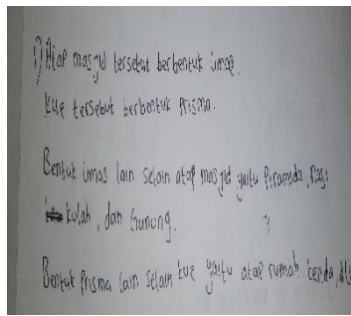 1) Atap masjid tersebut berbentuk limas.
Kue tersebut berbentuk Prisma.
Bentuk limas lain selain atap masjid yaitu Piramida,
kulah, dan Gunung.
Bentuk Prisma lain selain kue yaitu atap rumah, tenda,